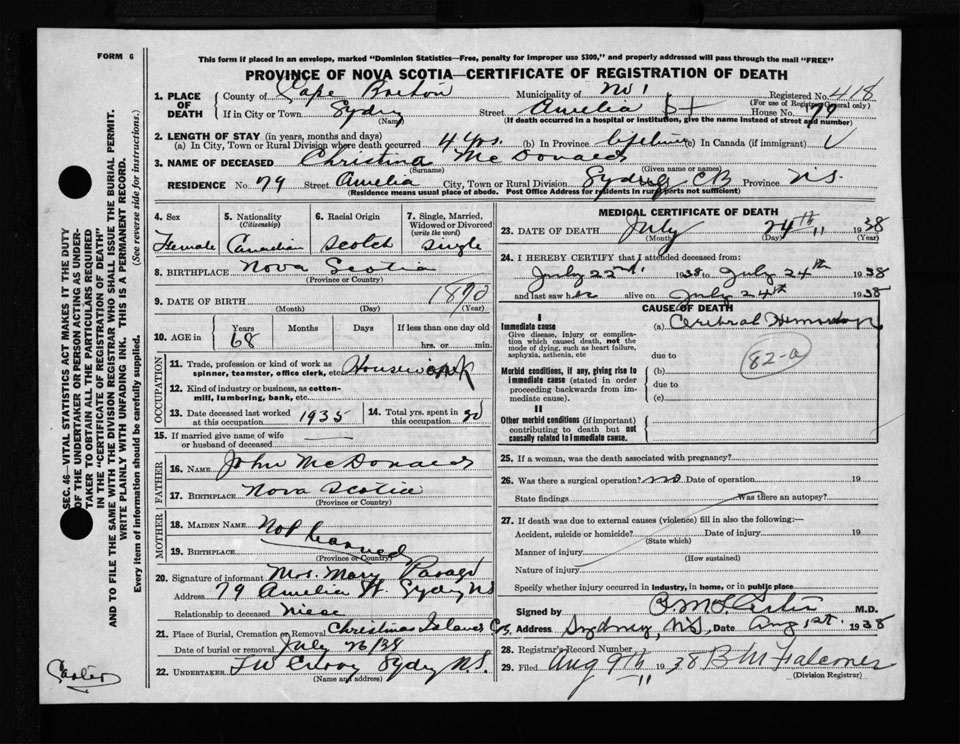 FORM 6
This form if placed in an envelope, marked "Dominion Statistics—Free, penalty for improper use $300," and properly addressed will pass through the mail "FREE"
PROVINCE OF NOVA SCOTIA—CERTIFICATE OF REGISTRATION OF DEATH
1. PLACE OF DEATH
County of Cape Breton Municipality of No 1 Registered No. 418
(For use of Registrar General only)
If in City or Town Sydney Street Amelia St House No. 79
(Name) (If death occurred in a hospital or institution, give the name instead of street and number)
2. LENGTH OF STAY (in years, months and days)
(a) In City, Town or Rural Division where death occurred 4 yrs. (b) In Province lifetime (c) In Canada (if immigrant)
3. NAME OF DECEASED Christina McDonald
(Surname) (Given name or names)
RESIDENCE No. 79 Street Amelia City, Town or Rural Division Sydney CB Province N.S.
(Residence means usual place of abode. Post Office Address for residents in rural parts not sufficient)
4. Sex Female
5. Nationality (Citizenship) Canadian
6. Racial Origin Scotch
7. Single, Married, Widowed or Divorced (write the word) Single
8. BIRTHPLACE Nova Scotia
(Province or Country)
9. DATE OF BIRTH 1870
(Month) (Day) (Year)
10. AGE in Years 68 Months Days If less than one day old hrs. or min.
OCCUPATION
11. Trade, profession or kind of work as spinner, teamster, office clerk, etc. Housework
12. Kind of industry or business, as cotton-mill, lumbering, bank, etc.
13. Date deceased last worked at this occupation 1935
14. Total yrs. spent in this occupation 50
15. If married give name of wife or husband of deceased —
FATHER
16. NAME John McDonald
17. BIRTHPLACE Nova Scotia
(Province or Country)
MOTHER
18. MAIDEN NAME Not learned
19. BIRTHPLACE
(Province or Country)
20. Signature of informant Mrs. Mary
Address 79 Amelia St. Sydney NS
Relationship to deceased Niese
21. Place of Burial, Cremation or Removal Christmas Island C.B.
Date of burial or removal July 26/38
22. UNDERTAKER Sydney N.S.
(Name and address)
MEDICAL CERTIFICATE OF DEATH
23. DATE OF DEATH July 24th 1938
(Month) (Day) (Year)
24. I HEREBY CERTIFY that I attended deceased from:
July 22nd. 1938 to July 24th 1938
and last saw her alive on July 24th 1938
CAUSE OF DEATH
I
Immediate cause (a) Cerebral
Give disease, injury or complication which caused death, not the mode of dying, such as heart failure, asphyxia, asthenia, etc
due to
82-a
Morbid conditions, if any, giving rise to immediate cause (stated in order proceeding backwards from immediate cause).
(b)
due to
(c)
II
Other morbid conditions (if important) contributing to death but not causally related to immediate cause.
25. If a woman, was the death associated with pregnancy?
26. Was there a surgical operation? no Date of operation 19
State findings Was there an autopsy?
27. If death was due to external causes (violence) fill in also the following:—
Accident, suicide or homicide? Date of injury 19
(State which)
Manner of injury
(How sustained)
Nature of injury
Specify whether injury occurred in industry, in home, or in public place
Signed by M.D.
Address Sydney, N.S., Date Aug 1st. 1938
28. Registrar's Record Number
29. Filed Aug 9th 1938 B M Falconer
(Division Registrar)
SEC. 46—VITAL STATISTICS ACT MAKES IT THE DUTY
OF THE UNDERTAKER OR PERSON ACTING AS UNDER-
TAKER TO OBTAIN ALL THE PARTICULARS REQUIRED
IN THE "CERTIFICATE OF REGISTRATION OF DEATH"
AND TO FILE THE SAME WITH THE DIVISION REGISTRAR WHO SHALL ISSUE THE BURIAL PERMIT.
WRITE PLAINLY WITH UNFADING INK. THIS IS A PERMANENT RECORD.
Every item of information should be carefully supplied. (See reverse side for instructions.)